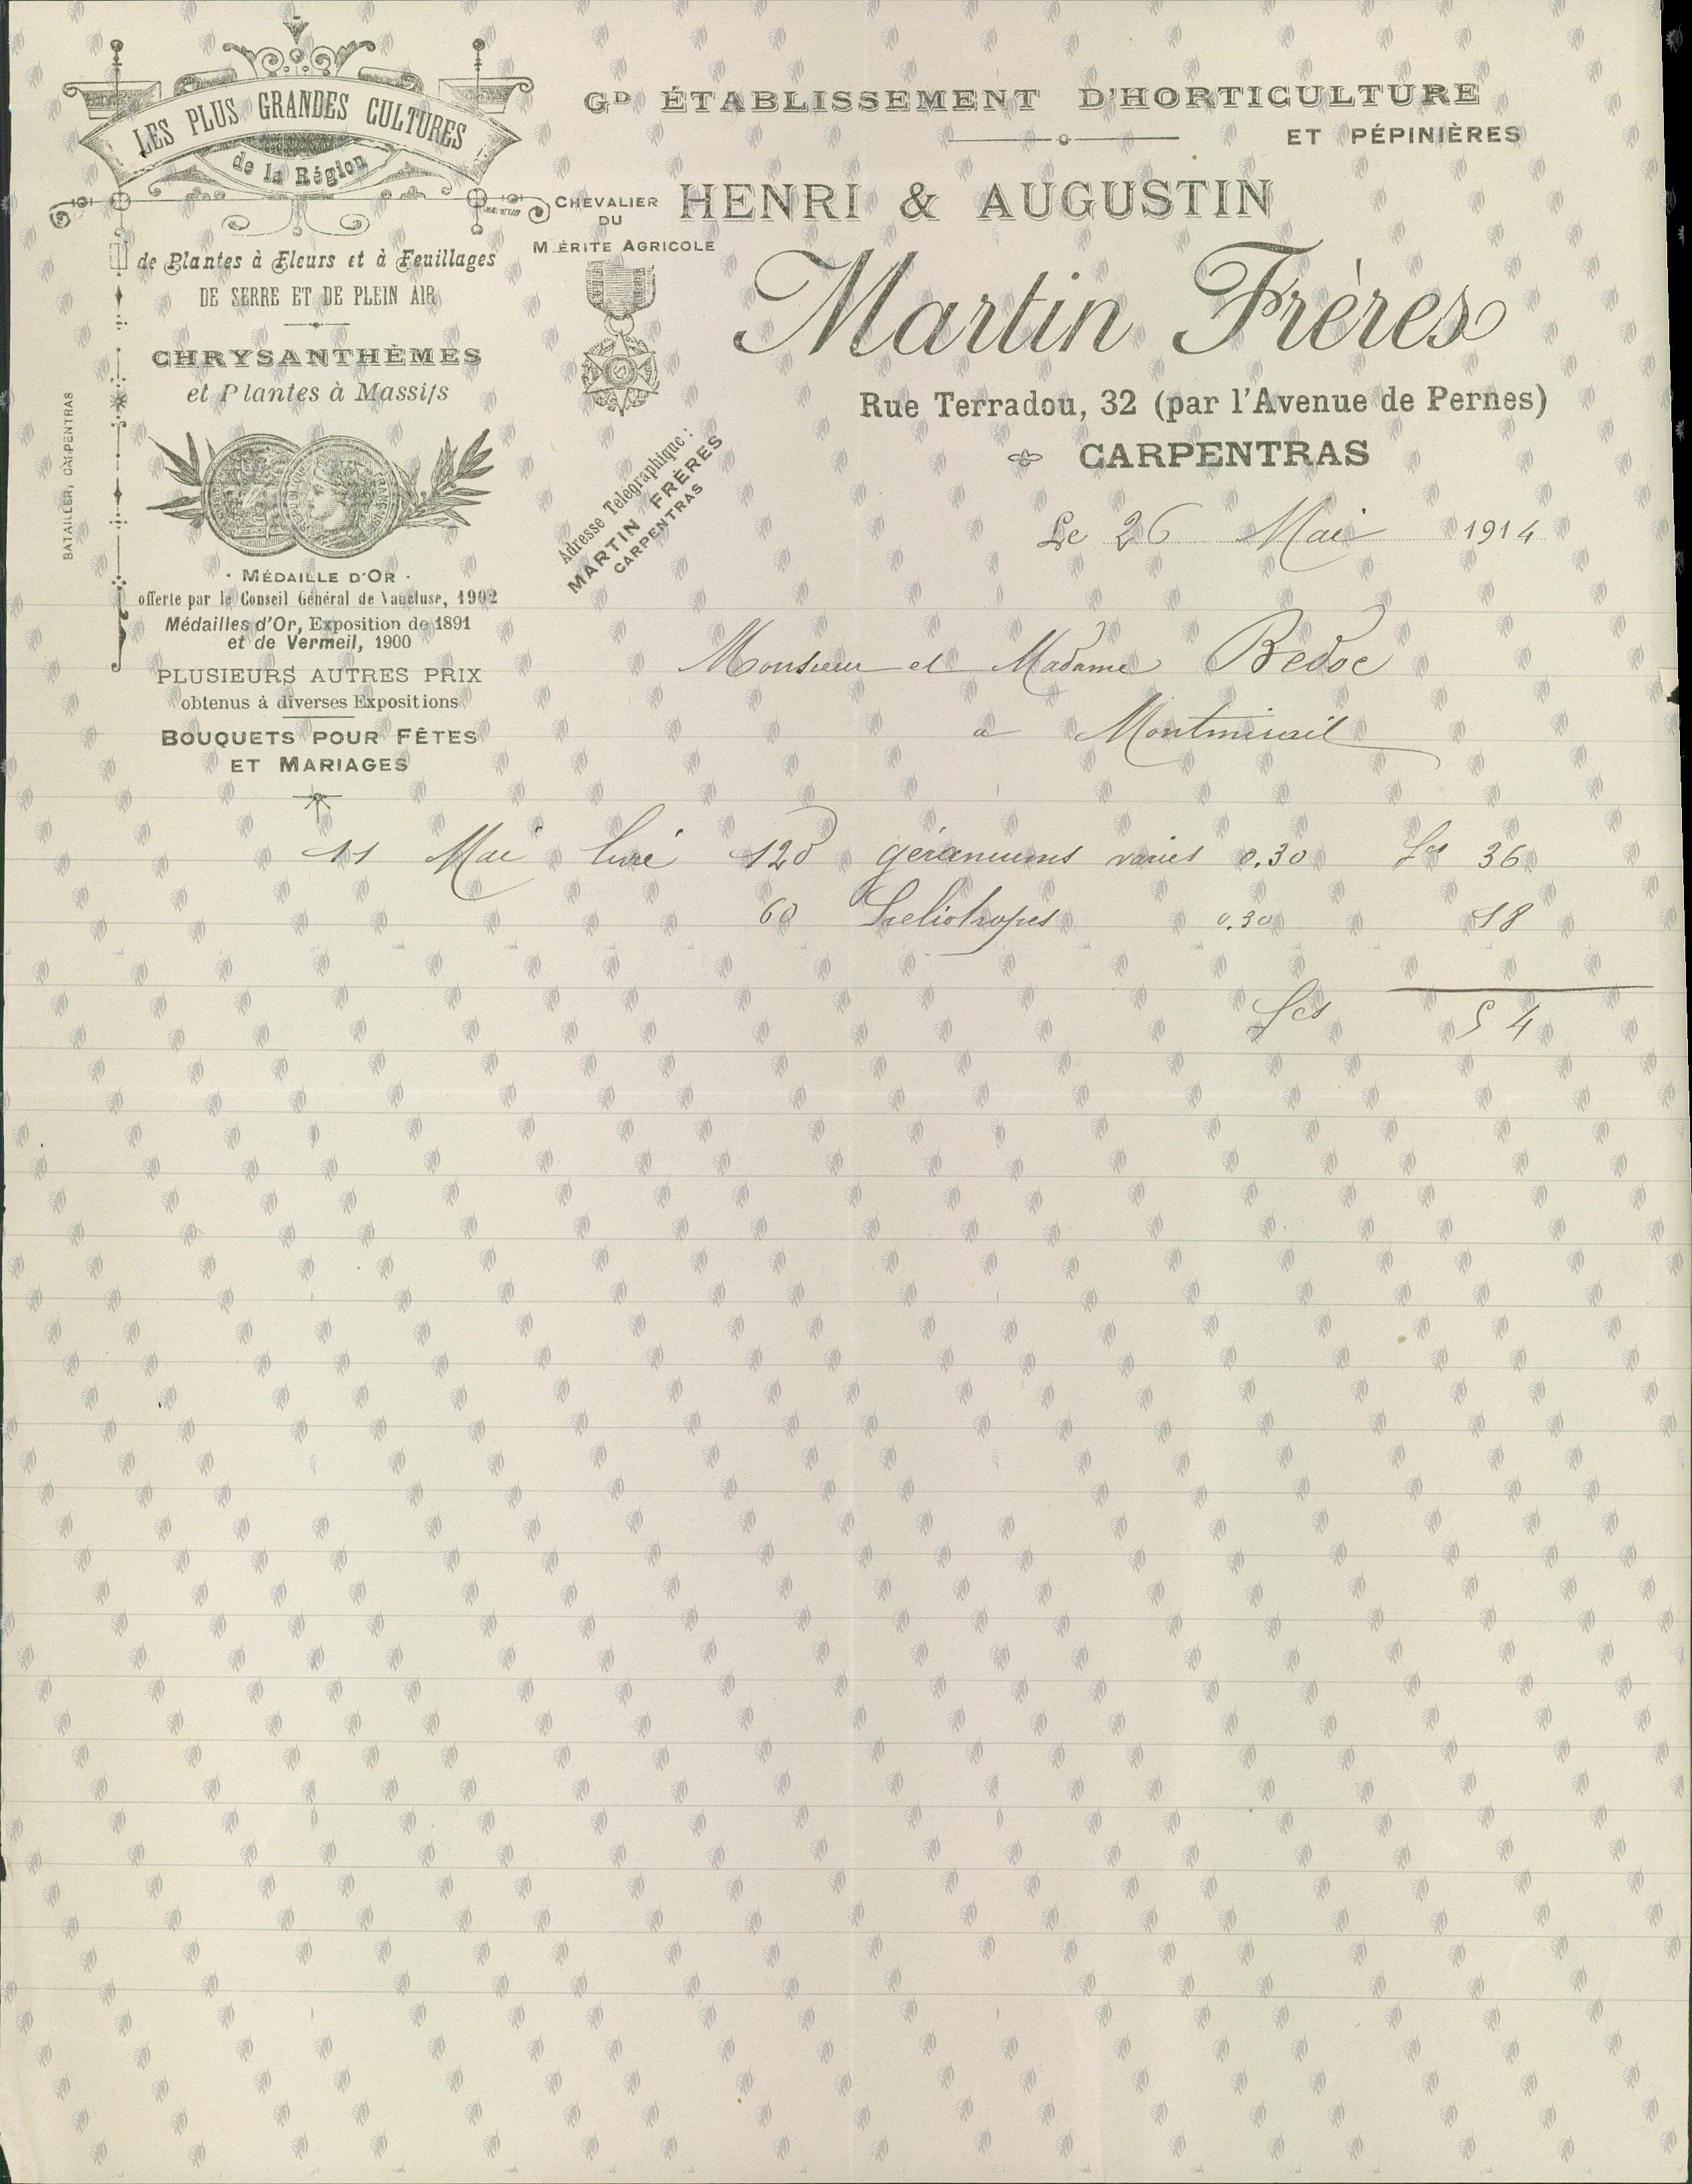 LES PLUS GRANDES CULTURES
de la Région
de Plantes à Fleurs et à Feuillages
DE SERRE ET DE PLEIN AIR
CHRYSANTHÈMES
et Plantes à Massifs
BATAILLER, CARPENTRAS
MÉDAILLE D'OR
offerte par le Conseil Général de Vaucluse, 1902
Médailles d'Or, Exposition de 1891
et de Vermeil, 1900
PLUSIEURS AUTRES PRIX
obtenus à diverses Expositions
BOUQUETS POUR FÊTES
ET MARIAGES
CHEVALIER
DU
MÉRITE AGRICOLE
Adresse Télégraphique :
MARTIN FRÈRES
CARPENTRAS
GD ÉTABLISSEMENT D'HORTICULTURE
ET PÉPINIÈRES
HENRI & AUGUSTIN
Martin Frères
Rue Terradou, 32 (par l'Avenue de Pernes)
CARPENTRAS
Le 26 Mai 1914
Monsieur et Madame Bedoc
a Montmirail
11 Mai livré 120 géraniums variés 0.30 fcs 36
60 heliotropes 0.30 18
fcs 54